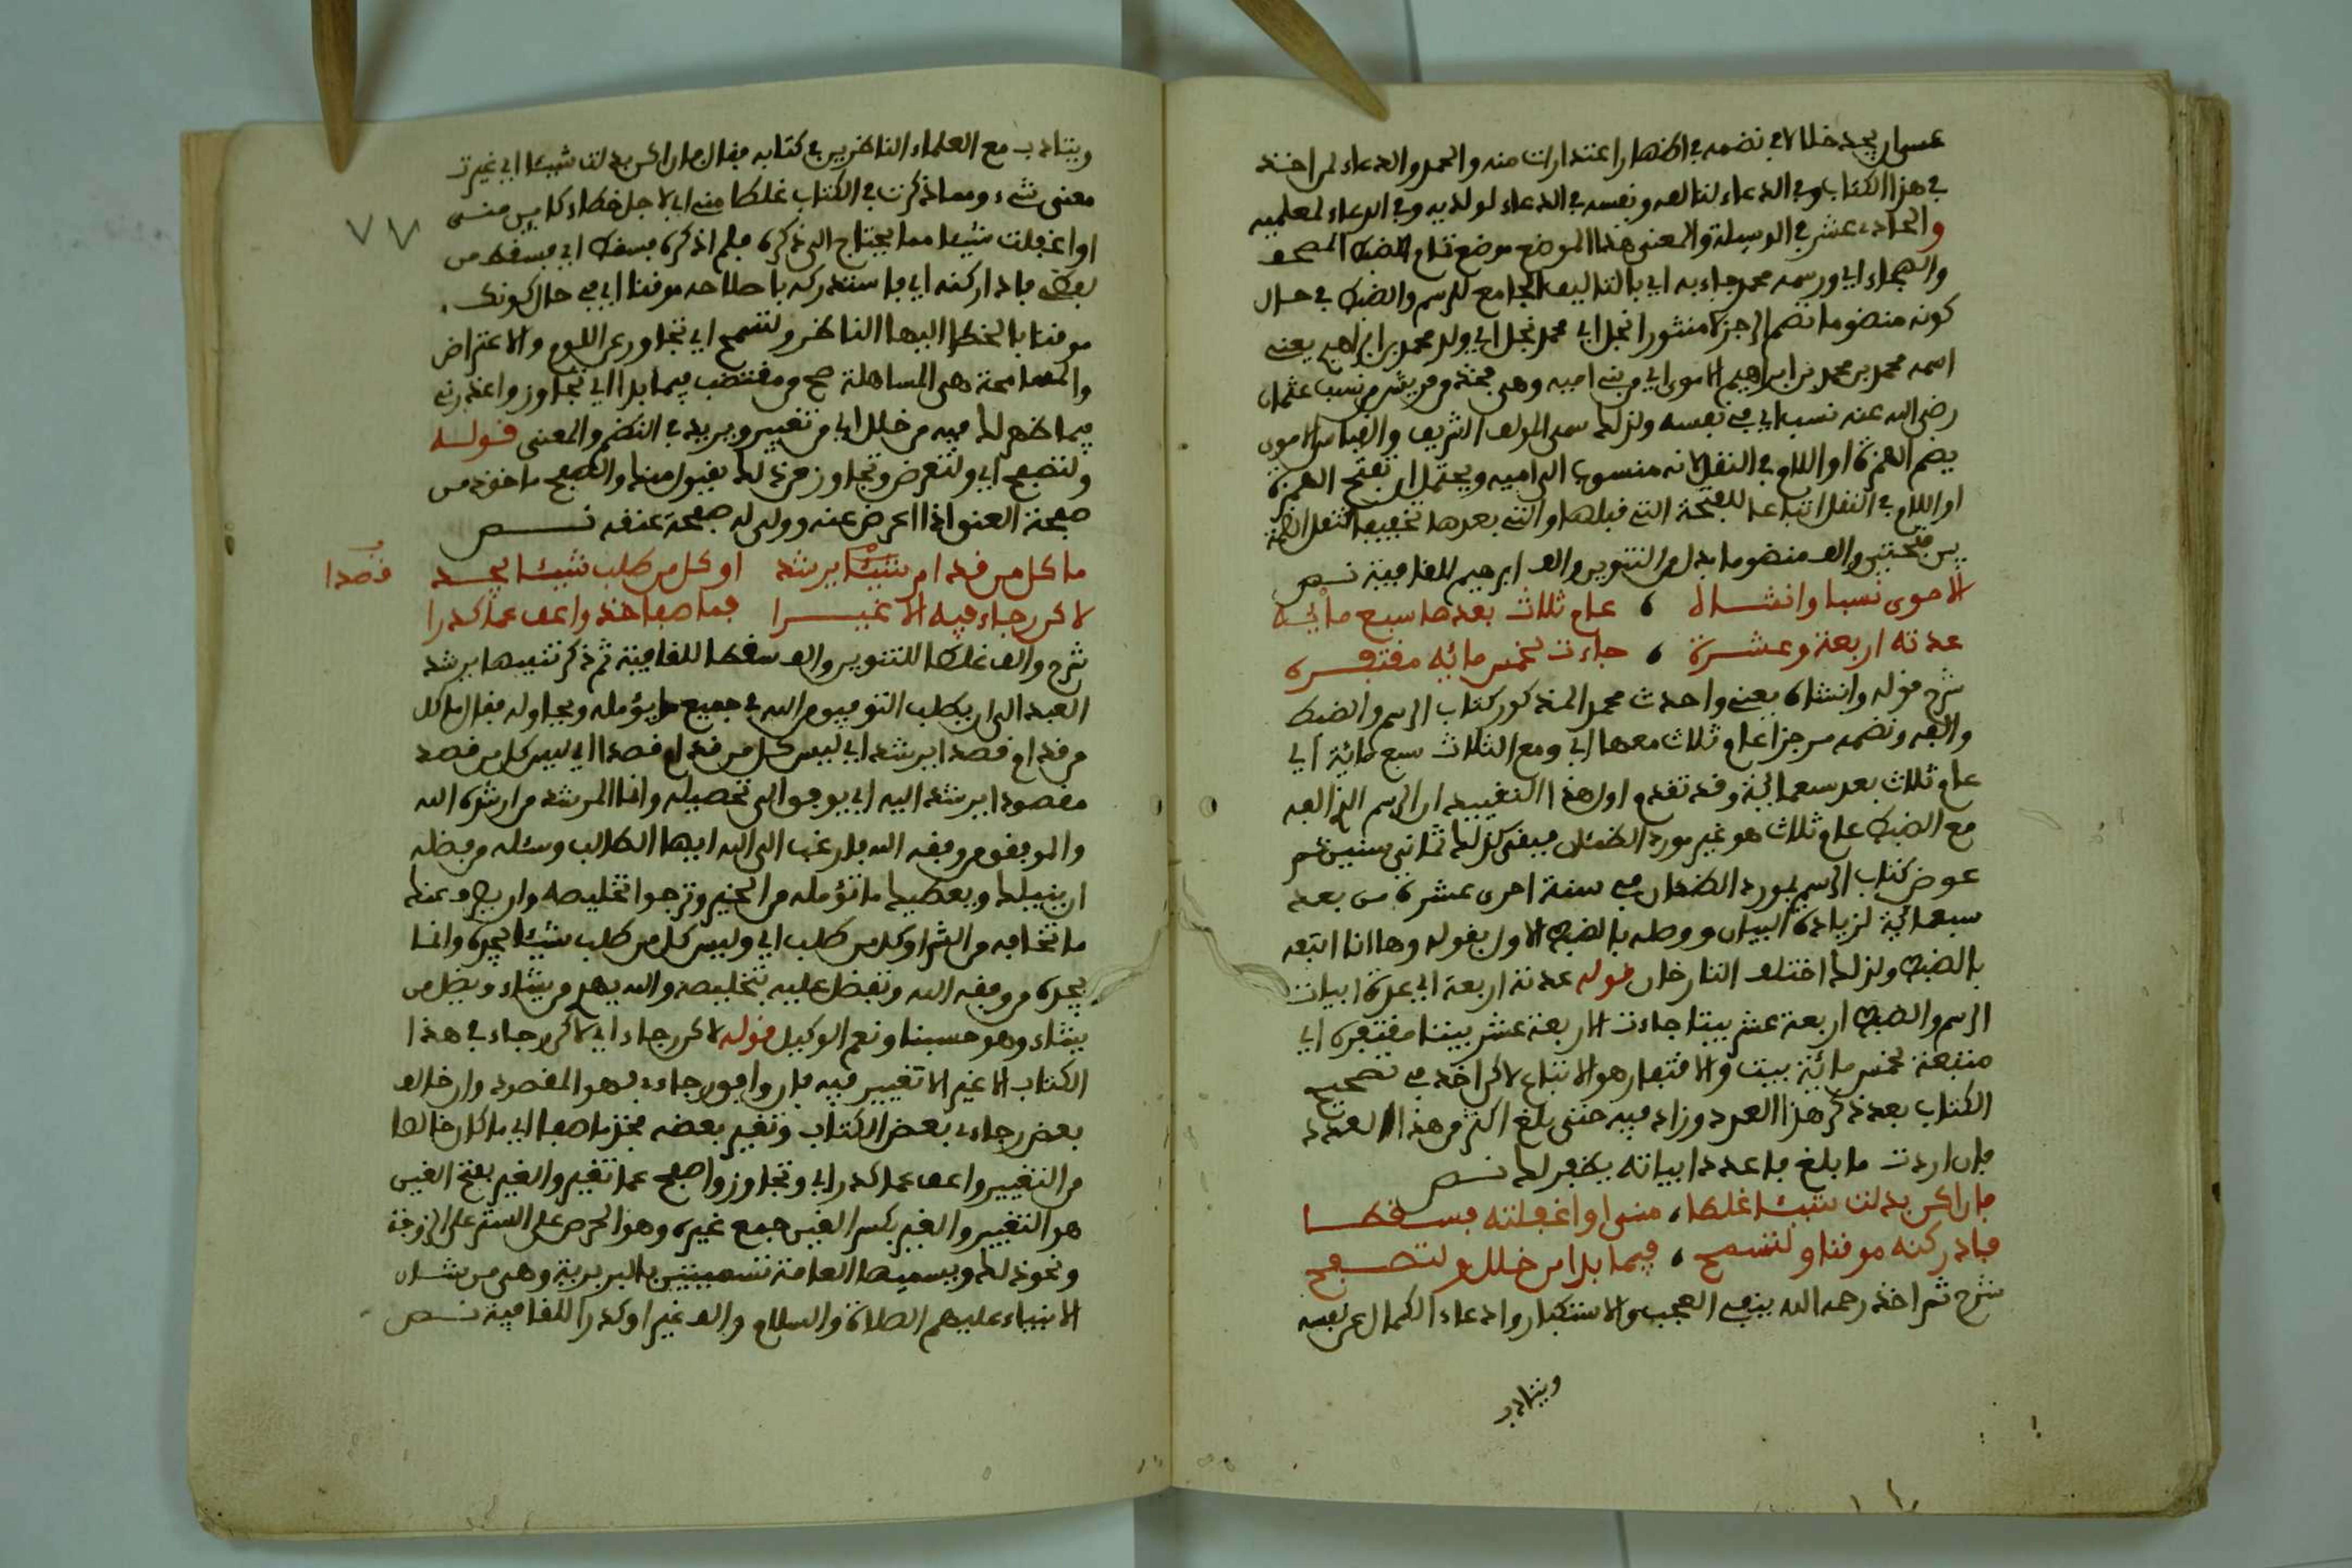 عسى ان يجد خللا في نضمه في اظهار اعتذارات منه والحمد والدعاء لمن اخذ
في هذا الكتاب وفي الدعاء لنا لعه ونفسه في الدعاء لولديه وفي الدعاء لمعلميه
والحادي عشر في الوسيلة والمعنى هذا الموضع موضع تمام الضبط المصحف
والهجاء اي ورسمه محمد جاء به اي بالتاليف الجامع للرسم والضبط في حال
كونه منضوما نضم الرجز لا منثورا نجل اي محمد نجل اي ولد محمد بن ابراهيم يعني
اسمه محمد بن محمد بن ابراهيم الاموي اي من بني امية وهي فخذ من قريش من نسب عثمان
رضي الله عنه نسبا اي في نفسه ولذلك سمى المولف الشريف والقياس الاموي
بضم الهمزة او اللام في النقل لانه منسوب الى امية ويحتمل ان تفتح الهمزة
او اللام في النقل اتباعا للفتحة التي قبلها والتي بعدها تخفيفا لثقل الضمة
بين فتحتين والف منضوما بدل من التنوين والف ابرهيم للقافية نص
الاموي نسبا وانشاه ، عام ثلاث بعدها سبع مائه
عدته اربعة وعشرة ، جاءت لخمس مائه مقتفره
شرح قوله وانشاه يعني واحدث محمد المذكور كتاب الرسم والضبط
والفه ونضمه من جزا عام ثلاث معها اي ومع الثلاث سبع مائة اي
عام ثلاث بعد سبعمائة وقد تقدم اول هذا التقييد ان الرسم الذي الفه
مع الضبط عام ثلاث هو غير مورد الظمئان فبقي كذلك ثماني سنين ثم
عوض كتاب الرسم بمورد الظمان في سنة احدى عشرة من بعد
سبعمائة لزيادة البيان ووصله بالضبط الاول بقوله وها انا اتبعه
بالضبط ولذلك اختلف التارخان قوله عدته اربعة اي عدة ابيات
الرسم والضبط اربعة عشر بيتا جاءت الاربعة عشر بيتا مقتفرة اي
متبعة لخمس مائة بيت والاقتفار هو الاتباع لاكن اخذ في تصحيح
الكتاب بعد ذكر هذا العدد وزاد فيه حتى بلغ اكثر من هذا العدد
فان اردت ما بلغ فاعدد ابياته يظهر لك نص
فان اكن بدلت شيئا غلطا ، مني او اغفلته فسقطا
فادركنه موقنا ولتسمح ، فيما بدا من خلل ولتصفح
شرح ثم اخذ رحمه الله ينفي العجب والاستكبار وادعاء الكمال عن نفسه
ويتادب
ويتادب مع العلماء الناظرين في كتابه فقال فان اكن بدلت شيئا اي غيرت
معنى شيء ومما ذكرت في الكتاب غلطا مني اي لاجل خطاء كاين مني
او اغفلت شيئا مما يحتاج الى ذكره فلم اذكره فسقط اي فسقط من
لفظي فادركنه اي فاستدركه باصلاحه موقنا اي في حال كونك
موقنا بالخطا ايها الناظر ولتسمح اي تجاوز عن اللوم والاعتراض
والمسامحة هي المساهلة صح ومقتضب فيما بدا اي تجاوز واعذرني
فيما ظهر لك فيه من خلل اي من تغيير ويريد في النظم والمعنى قوله
ولتصفح اي ولتعرض وتجاوز من ذلك بقبول منك والصفح ماخوذ من
صفحة العنق اذا اعرض عنه وولى له صفحة عنقه نص
ما كل من قد ام شيئا يرشد او كل من طلب شيئا يجد
قصدا
لاكن رجاء فيه الا غيرا فما صفا خذ واعف عما كدرا
شرح والف غلطا للتنوين والف سقطا للقافية ثم ذكر تنبيها يرشد
العبد الى ان يطلب التوفيق من الله في جميع ما يؤمله ويحاوله فقال ما كل
من قد ام قصدا يرشد اي ليس كل من قد ام قصدا اي ليس كل من قصد
مقصودا يرشد اليه اي يوفق الى تحصيله وانما المرشد من ارشده الله
والموفق من وفقه الله فارغب الى الله ايها الطالب وسئله من فضله
ان ينيلك ويعطيك ما تؤمله من الخير وترجوا تخليصه وان يصرف عنك
ما تخافه من الشر او كل من طلب اي وليس كل من طلب شيئا يجده وانما
يجده من وفقه الله وتفضل عليه بتخليصه والله يهدي من يشاء ويضل من
يشاء وهو حسبنا ونعم الوكيل قوله لاكن رجاء اي لاكن رجاء في هذا
الكتاب الا غير الا تغيير فيه فان وافق رجاءه فهو المقصود وان خالف
بعض رجاءه بعض الكتاب وتغير بعضه فخذ ما صفا اي ما كان خالصا
من التغيير واعف عما كدر اي وتجاوز واصفح عما تغير والغير بفتح الغين
هو التغيير والغير بكسر الغين جمع غيرة وهو الحرص على الستر على الزوجة
ونحو ذلك ويسميها العامة تسمييتين بالبربرية وهي من شان
الانبياء عليهم الصلاة والسلام والف غيرا وكدرا للقافية نص
٧٧